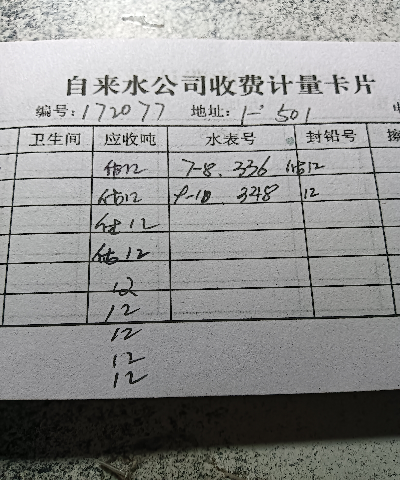 自来水公司收费计量卡片
编号:172077 地址:1-501
卫生间 应收吨 水表号 封铅号
估12 7-8. 336 估12
估12 9-10 348 12
估12
估12
12
12
12
12
12